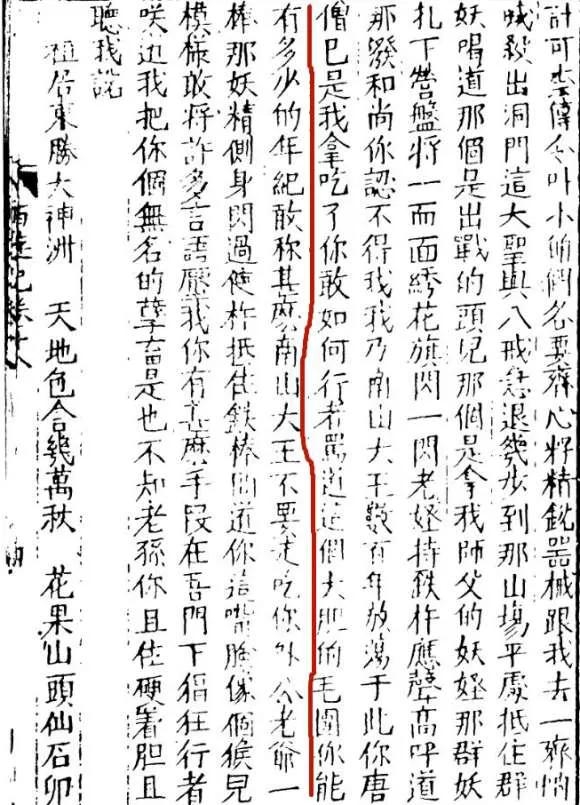 計可傳令叫小的們各要齊心將精銳器械跟我去一齊吶
喊殺出洞門這大聖與八戒急退幾步到那山塲平處抵住群
妖喝道那個是出戰的頭兒那個是拿我師父的妖怪那群妖
扎下營盤將一而面綉花旗閃一閃老怪持鉄杵應聲高呼道
那潑和尚你認不得我我乃南山大王數百年放蕩于此你唐
僧已是我拿吃了你敢如何行者罵道這個大胆的毛團你能
有多少的年紀敢称甚麽南山大王不要走吃你外公老爺一
棒那妖精側身閃過使杵抵住鉄棒問道你這嘴臉像個猴兒
模樣敢將許多言語壓我你有甚麽手段在吾門下猖狂行者
咲道我把你個無名的孽畜是也不知老孫你且住硬着胆且
聽我說
祖居東勝大神洲 天地包含幾萬秋 花果山頭仙石卵